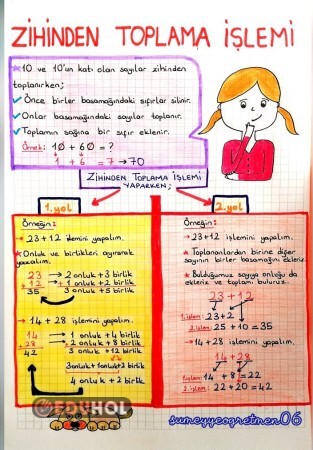 ZİHİNDEN TOPLAMA İŞLEMİ
10 ve 10'un katı olan sayılar zihinden
toplanırken;
✓ Önce birler basamağındaki sıfırlar silinir.
✓ Onlar basamağındaki sayılar toplanır.
✓ Toplamın sağına bir sıfır eklenir.
Örnek: 10 + 60 = ?
1 + 6 = 7 → 70
ZİHİNDEN TOPLAMA İŞLEMİ
YAPARKEN;
1.yol
Örneğin:
→ 23+12 işlemini yapalım.
★ Onluk ve birlikleri ayırarak
yazalım.
23 → 2 onluk + 3 birlik
+ 12 → 1 onluk + 2 birlik
35 3 onluk + 5 birlik
→ 14 + 28 işlemini yapalım.
14 → 1 onluk + 4 birlik
+ 28 → 2 onluk + 8 birlik
42 3 onluk + 12 birlik
3onluk+1onluk+2 birlik
4 onluk + 2 birlik
2.yol
Örneğin:
→ 23+12 işlemini yapalım.
★ Toplananlardan birine diğer
sayının birler basamağını ekleriz.
★ Bulduğumuz sayıya onluğu da
ekleriz ve toplamı buluruz.
23 + 12
1.işlem: 23+2
2.işlem: 25 + 10 = 35
→ 14+28 işlemini yapalım.
14+28
1.işlem: 14 + 8 = 22
2.işlem: 22 + 20 = 42
EĞİTİMHOL
sumeyyeogretmen06